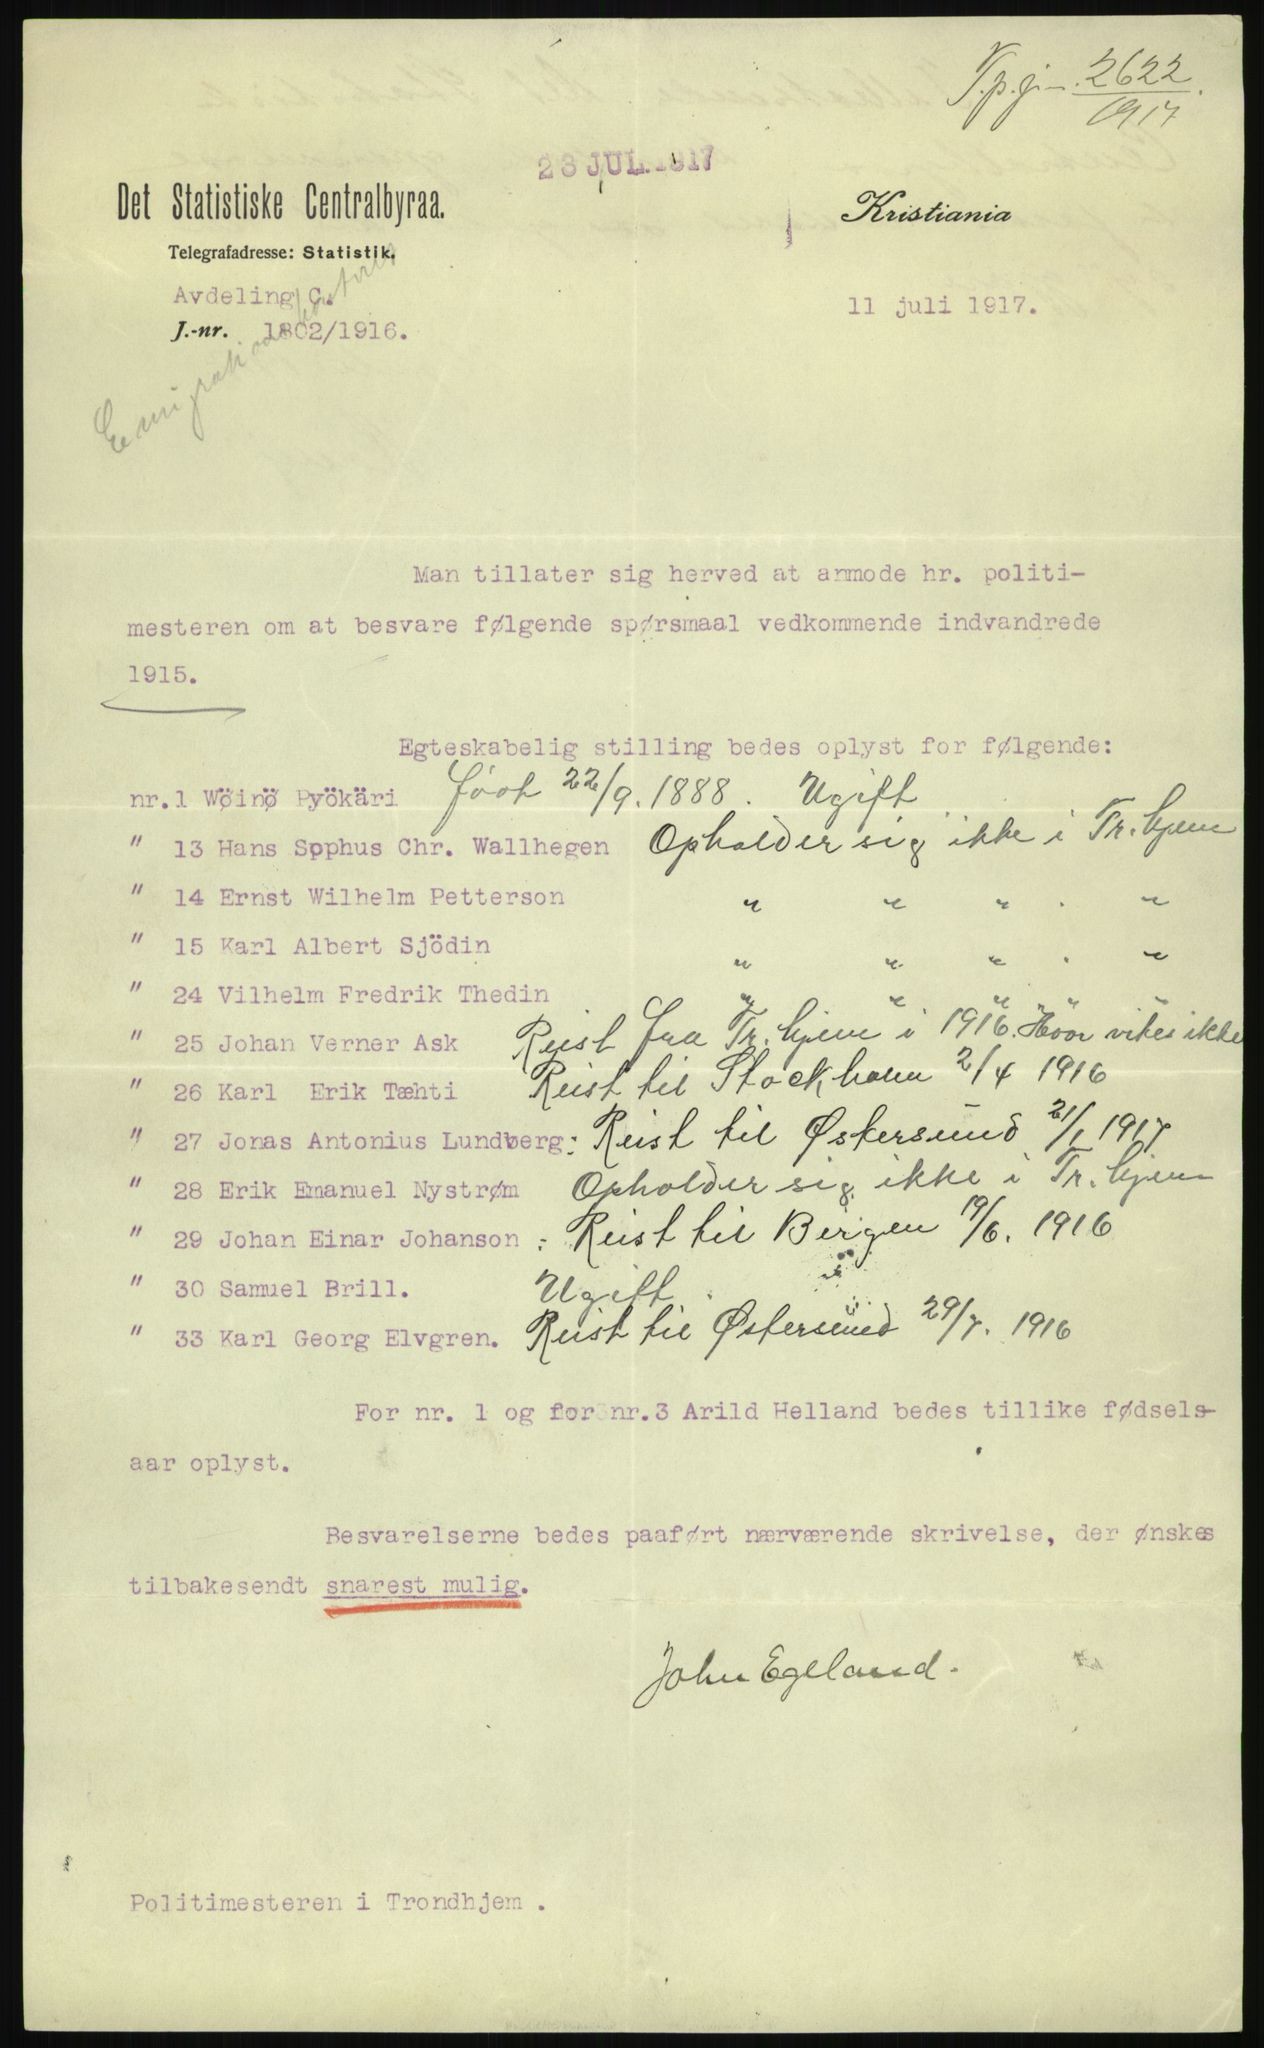 T.p.j. 2622
1917
28 JUL. 1917
Det Statistiske Centralbyraa.
Kristiania
Telegrafadresse: Statistik.
Avdeling C.
11 juli 1917.
J.-nr. 1802/1916.
Man tillater sig herved at anmode hr. politi-
mesteren om at besvare følgende spørsmaal vedkommende indvandrede
1915.
Egteskabelig stilling bedes oplyst for følgende:
nr.1 Wöinö Pyökäri født 22/9. 1888. Ugift
" 13 Hans Sophus Chr. Wallhegen Opholder sig ikke i Tr.hjem
" 14 Ernst Wilhelm Petterson " " " . "
" 15 Karl Albert Sjödin " " " . "
" 24 Vilhelm Fredrik Thedin " " " " "
" 25 Johan Verner Ask Reist fra Tr.hjem i 1916. Hvor vites ikke
" 26 Karl Erik Tæhti Reist til Stockholm 2/4 1916
" 27 Jonas Antonius Lundberg: Reist til Østersund 21/1 1917
" 28 Erik Emanuel Nystrøm Opholder sig ikke i Tr.hjem
" 29 Johan Einar Johanson : Reist til Bergen 19/6. 1916
" 30 Samuel Brill. Ugift.
" 33 Karl Georg Elvgren. Reist til Østersund 29/7. 1916
For nr. 1 og for nr.3 Arild Helland bedes tillike fødsels-
aar oplyst.
Besvarelserne bedes paaført nærværende skrivelse, der ønskes
tilbakesendt snarest mulig.
John Egeland.
Politimesteren i Trondhjem .